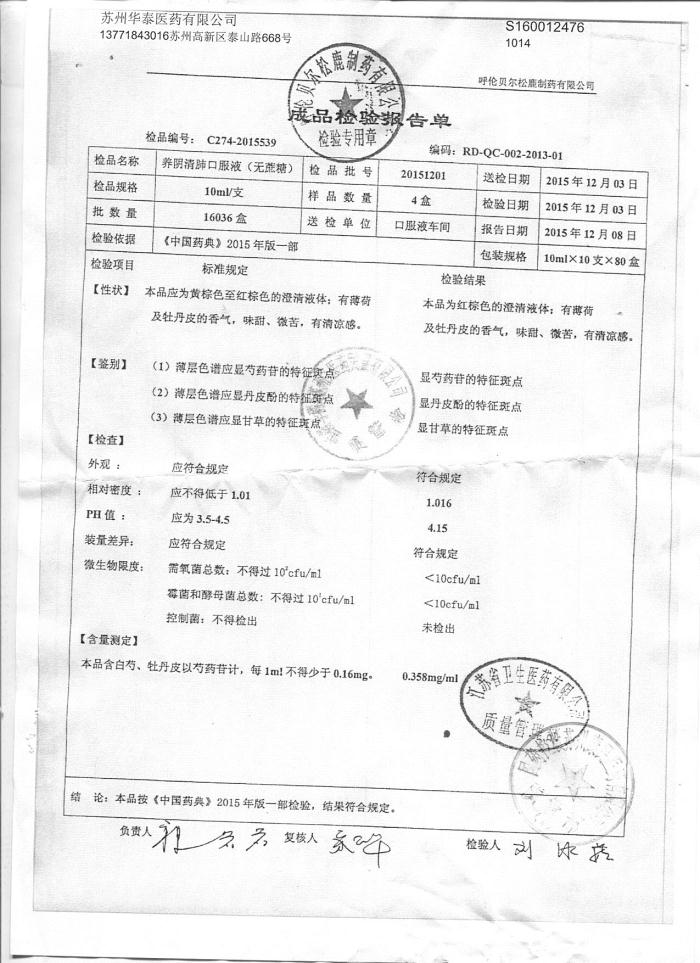 苏州华泰医药有限公司
S160012476
13771843016苏州高新区泰山路668号
1014
呼伦贝尔松鹿制药有限公司
呼伦贝尔松鹿制药有限公司
检验专用章
成品检验报告单
检品编号： C274-2015539
编码：RD-QC-002-2013-01
检品名称 养阴清肺口服液（无蔗糖） 检品批号 20151201 送检日期 2015年12月03日
检品规格 10ml/支 样品数量 4盒 检验日期 2015年12月03日
批数量 16036盒 送检单位 口服液车间 报告日期 2015年12月08日
检验依据 《中国药典》2015年版一部 包装规格 10ml×10支×80盒
检验项目 标准规定 检验结果
【性状】 本品应为黄棕色至红棕色的澄清液体；有薄荷 本品为红棕色的澄清液体；有薄荷
及牡丹皮的香气，味甜、微苦，有清凉感。 及牡丹皮的香气，味甜、微苦，有清凉感。
【鉴别】 （1）薄层色谱应显芍药苷的特征斑点 显芍药苷的特征斑点
（2）薄层色谱应显丹皮酚的特征斑点 显丹皮酚的特征斑点
（3）薄层色谱应显甘草的特征斑点 显甘草的特征斑点
【检查】
外观： 应符合规定 符合规定
相对密度： 应不得低于1.01 1.016
PH值： 应为3.5-4.5 4.15
装量差异： 应符合规定 符合规定
微生物限度： 需氧菌总数：不得过10²cfu/ml <10cfu/ml
霉菌和酵母菌总数：不得过10¹cfu/ml <10cfu/ml
控制菌：不得检出 未检出
【含量测定】
本品含白芍、牡丹皮以芍药苷计，每1ml不得少于0.16mg。 0.358mg/ml
江苏省卫生医药有限公司
质量管理
结 论：本品按《中国药典》2015年版一部检验，结果符合规定。
负责人 复核人 检验人 刘